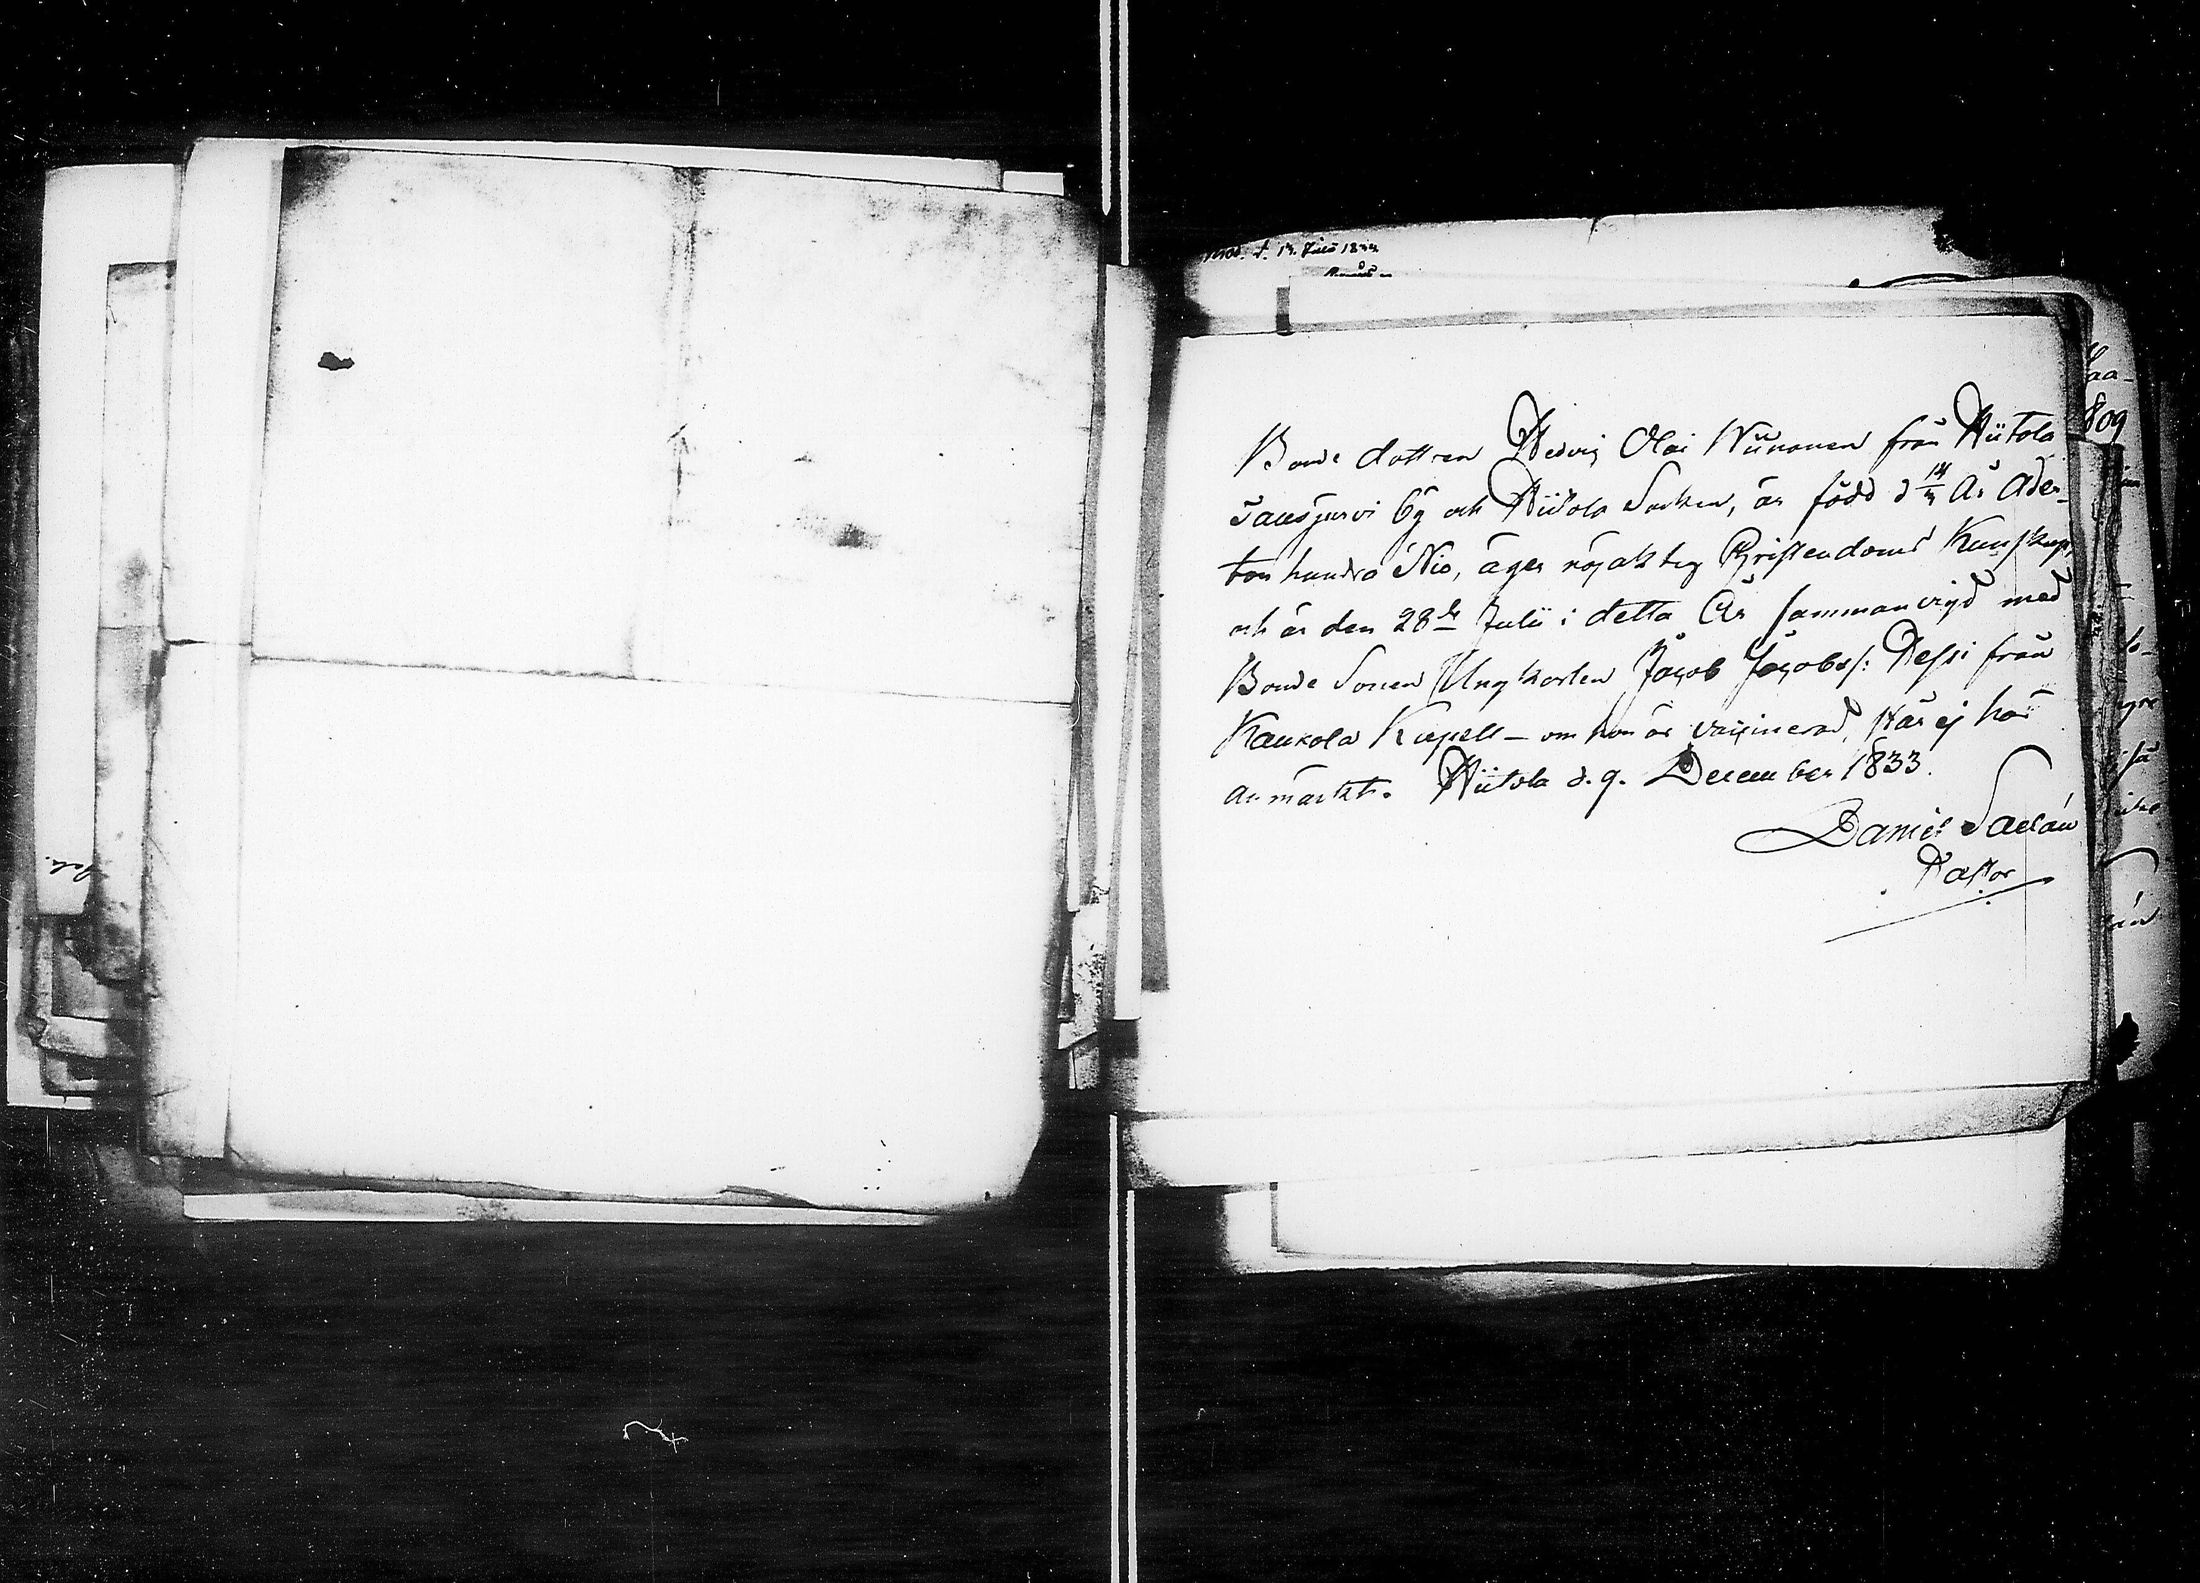 prod. d. 14. Julii 1834
Bonde dottren Hedvig Olai Niironen från Hiitola
by och Hiitola Socken, är född d 14/3 År Ader-
ton hundra Nio, äger nöjaktig Christendoms Kunskap,
och är den 28de Julii i detta År sammanvigd med
Bonde Sonen Ungkarlen Jacob Jacobss: Pessi från
Kaukola Kapell – om hon är vaccinerad, står ej här
anmärkt. Hiitola d. 9. December 1833.
Daniel
Pastor
809